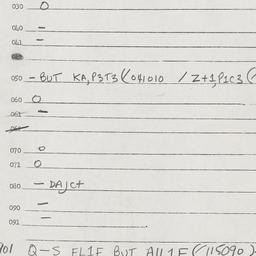 030 O
040 -
041 -
050 - BUT KA,P3T3 (041010 / Z+1,P1C3 (
060 O
061 -
070 O
071 O
080 - DAJC+
090 -
091 -
901 Q-S FL1F BUT A111F (115090)